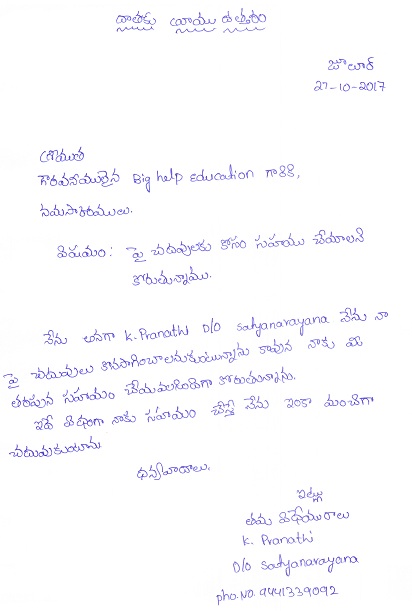 దాతకు రాయు ఉత్తరం
ఏలూరు
27-10-2017
శ్రీయుత
గౌరవనీయులైన Big help Education గారికి,
నమస్కారములు.
విషయం: పై చదువులకు కోసం సహయం చేయాలని
కోరుతున్నాము.
నేను అనగా K. Pranathi D/O Satyanarayana నేను నా
పై చదువులు కొనసాగించాలనుకుంటున్నాను కావున నాకు మీ
తరపున సహాయం చేయవలసిందిగా కోరుతున్నాను.
ఇదే విధంగా నాకు సహాయం చేస్తే నేను ఇంకా మంచిగా
చదువుకుంటాను
ధన్యవాదాలు.
ఇట్లు
తమ విధేయురాలు
K. Pranathi
D/O Satyanarayana
pho.NO. 9441339092